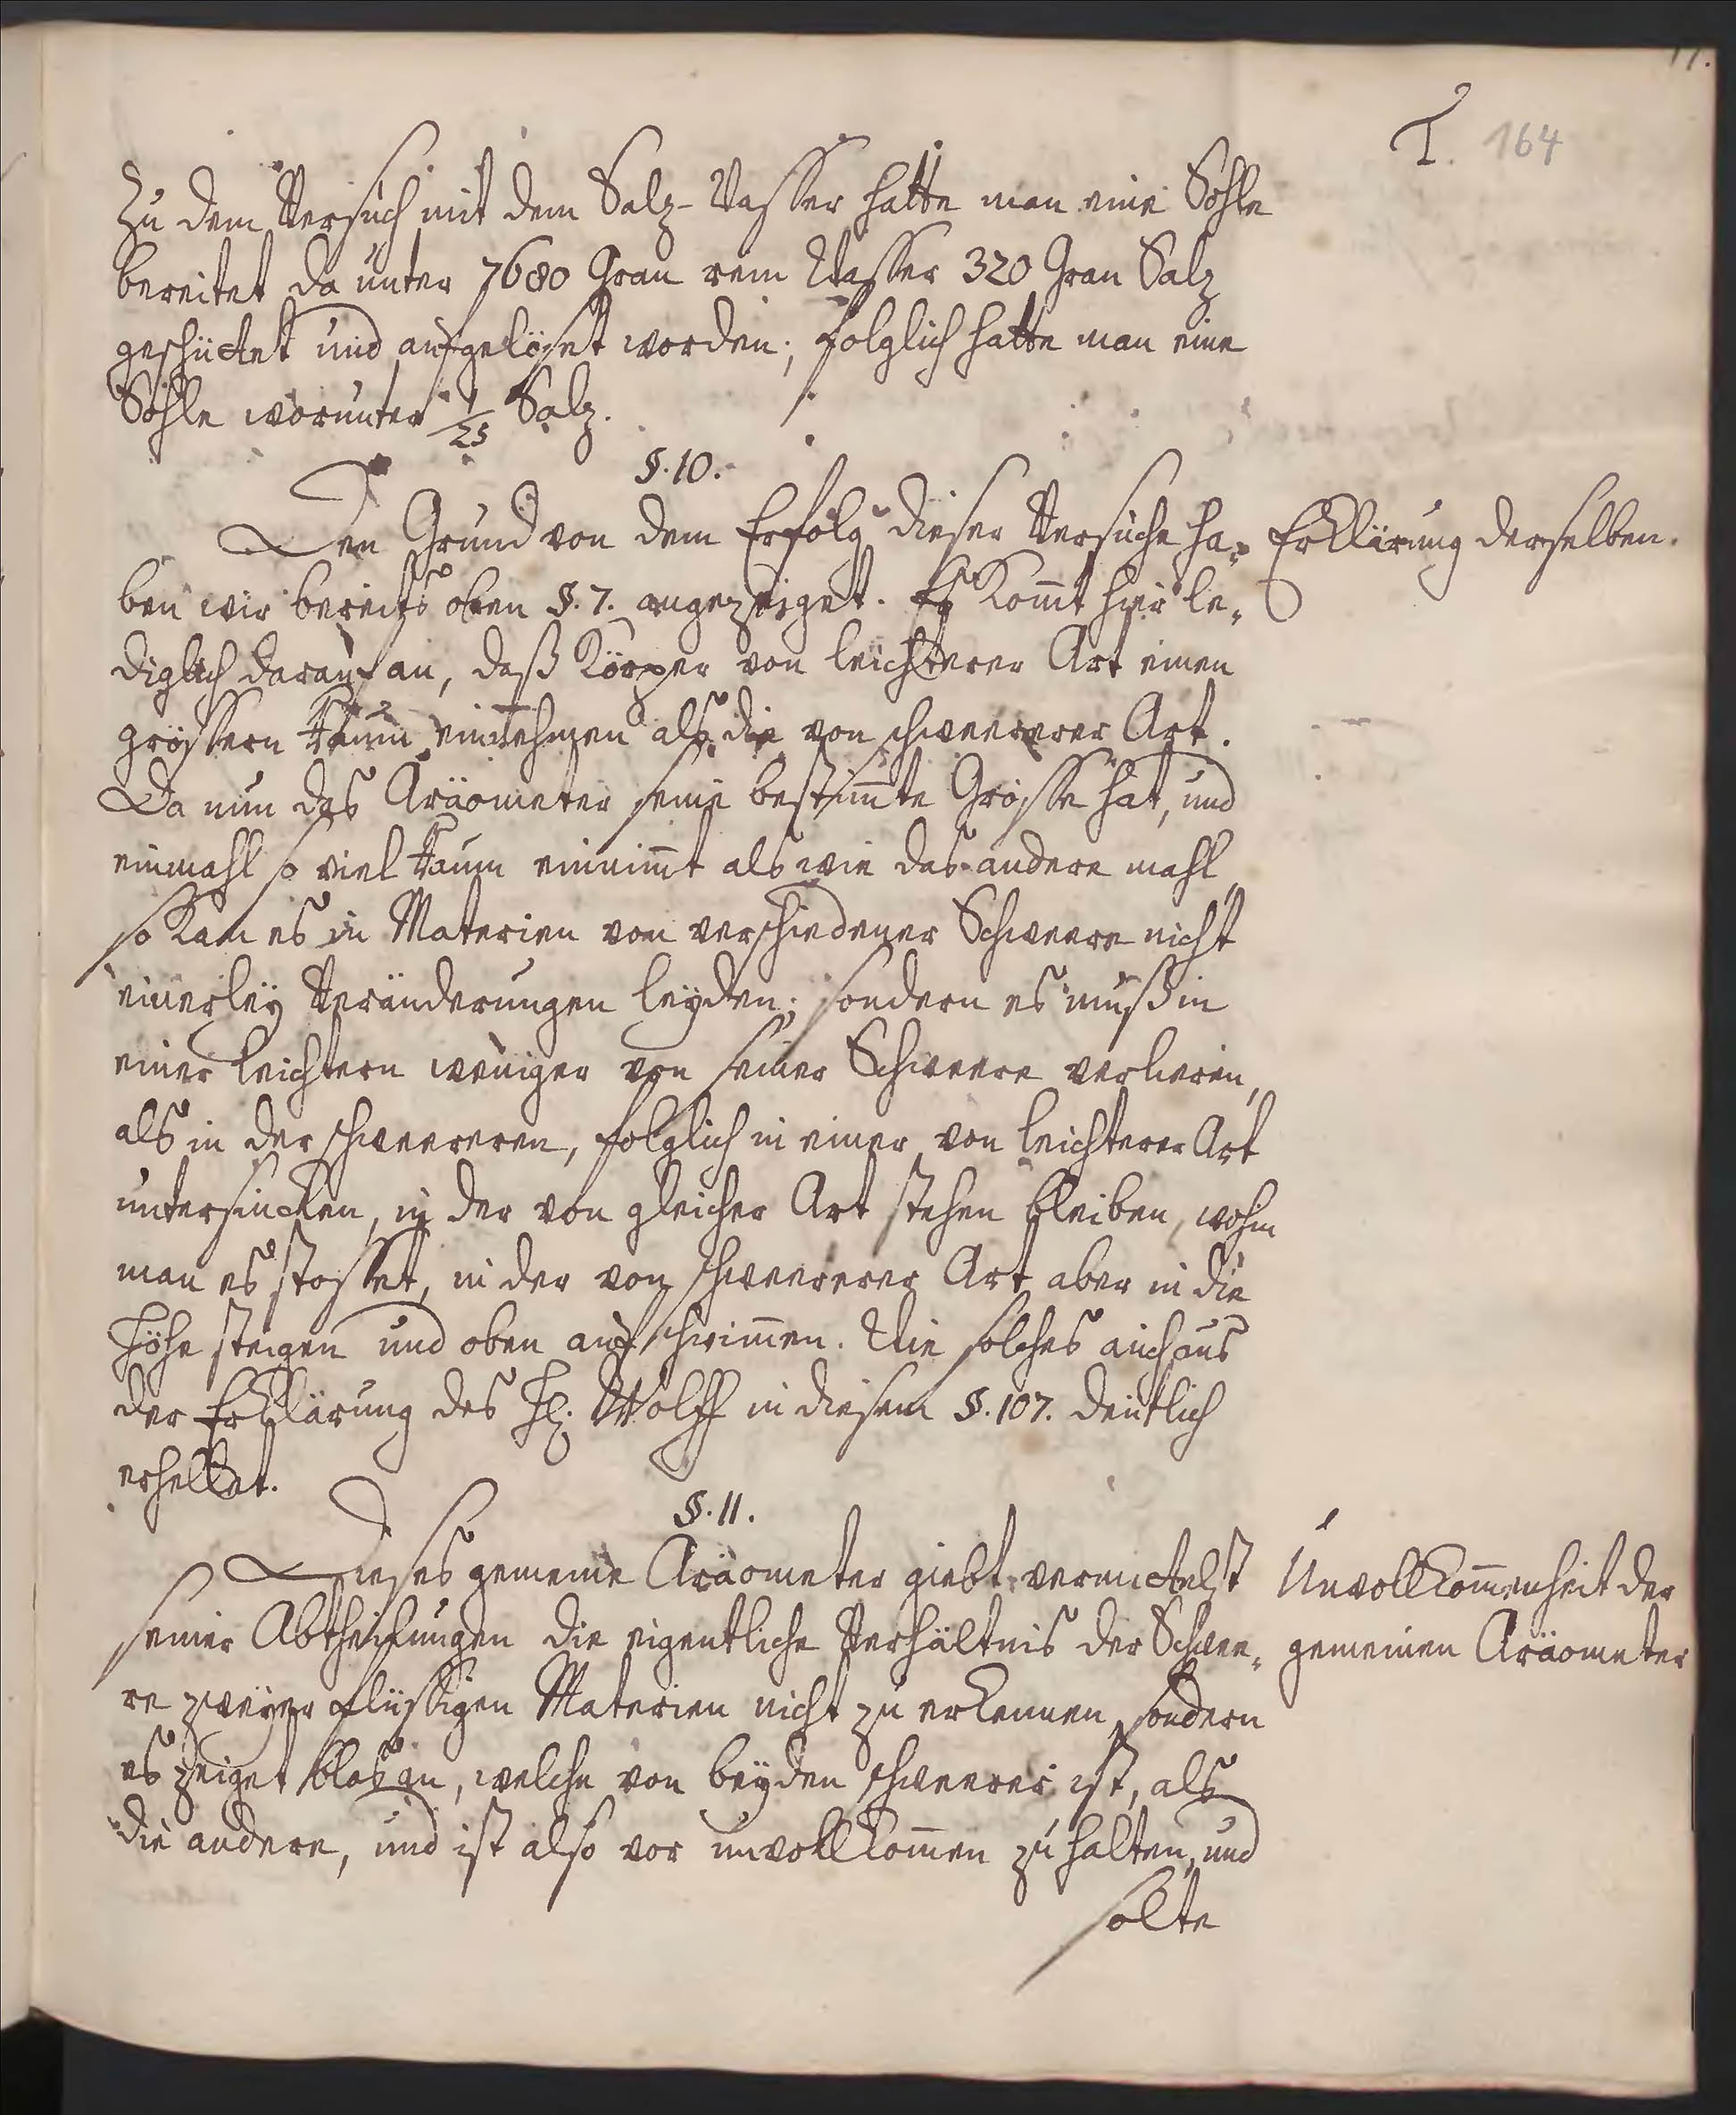 17.
I. 164
Zu dem Versuch mit dem Salz-Wasser hatte man eine Sohle
bereitet da unter 7680 Gran rein Wasser 320 Gran Salz
geschüttet und aufgelöset worden; folglich hatte man eine
Sohle worunter 1/25 Salz.
§. 10.
Den Grund von dem Erfolg dieser Versuche ha-
Erklärung derselben.
ben wir bereits oben §. 7. angezeiget. Es kom̄t hier le-
diglich darauf an, daß Körper von leichterer Art einen
grössern Raum einnehmen als die von schweererer Art.
Da nun das Aräometer seine bestim̄te Grösse hat, und
einmahl so viel Raum einnim̄t als wie das andere mahl,
so kan es in Materien von verschiedener Schweere nicht
einerleÿ Veränderungen leÿden; sondern es muß in
einer leichtern weniger von seiner Schweere verlieren,
als in der schweereren, folglich in einer von leichterer Art
untersincken, in der von gleicher Art stehen bleiben, wohin
man es stosset, in der von schweererer Art aber in die
Höhe steigen und oben auf schwim̄en. Wie solches auch aus
der Erklärung des H. Wolff in diesem §. 107. deutlich
erhellet.
§. 11.
Dieses gemeine Aräometer giebt vermittelst
Unvollkom̄enheit der
seiner Abtheilungen die eigentliche Verhältnis der Schwee-
gemeinen Aräometer
re zweÿer flüssigen Materien nicht zu erkennen, sondern
es zeiget blos an, welche von beÿden schweerer ist, als
die andere, und ist also vor unvollkom̄en zu halten, und
solte